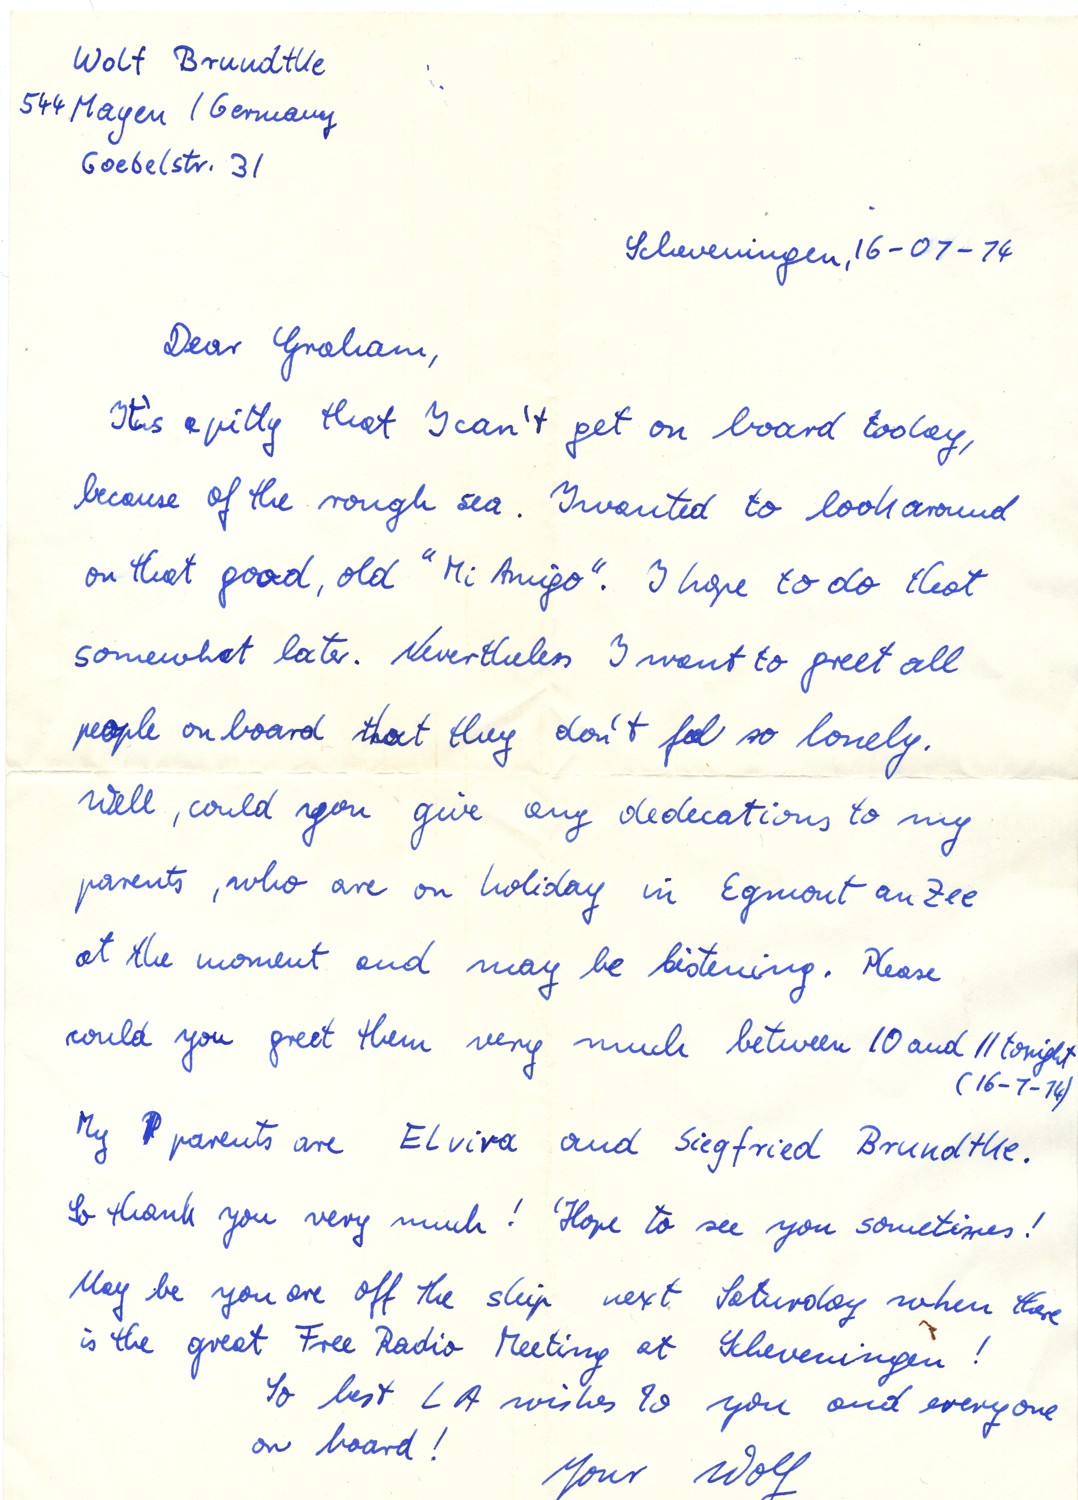 Wolf Brundtke
544 Mayen / Germany
Goebelstr. 31
Scheveningen, 16-07-74
Dear Graham,
It's a pitty that I can't get on board today,
because of the rough sea. I wanted to look around
on that good, old "Mi Amigo". I hope to do that
somewhat later. Nevertheless I want to greet all
people on board that they don't feel so lonely.
Well, could you give any dedecations to my
parents, who are on holiday in Egmont an Zee
at the moment and may be listening. Please
could you greet them very much between 10 and 11 tonight
(16-7-74)
My parents are Elvira and Siegfried Brundtke.
So thank you very much! Hope to see you sometimes!
May be you are off the ship next Saturday when there
is the great Free Radio Meeting at Scheveningen!
So best LA wishes to you and everyone
on board!
Your Wolf